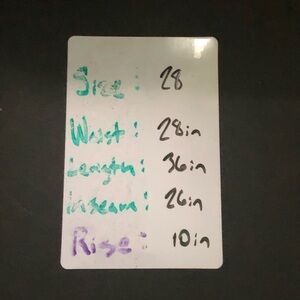 Size: 28
Waist: 28in
Length: 36in
inseam: 26in
Rise: 10in